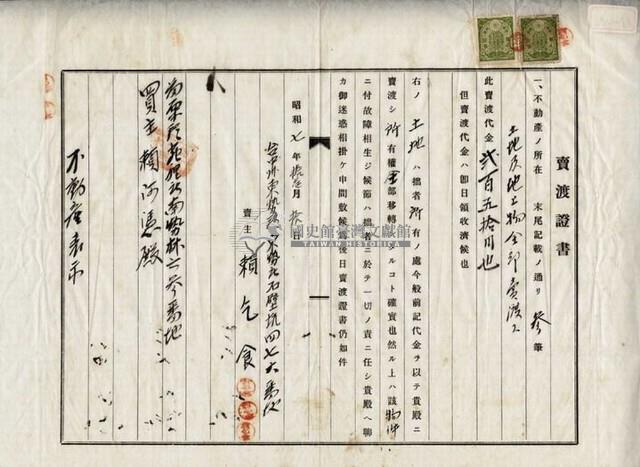 賣渡證書
一、不動産ノ所在 末尾記載ノ通リ 參筆
土地及地上物全部賣渡ス
此賣渡代金 貳百五拾円也
但賣渡代金ハ卽日領收濟候也
右ノ 土地 ハ拙者 所有 ノ處今般前記代金ヲ以テ貴殿ニ
賣渡シ 所 有權 全 部移轉 スルコト確實也然ル上ハ該 物件
ニ付故障相生ジ候節ハ拙者ニ於テ一切ノ責ニ任シ貴殿ヘ聊
カ御迷惑相掛ケ申間敷候爲後日賣渡證書仍如件
昭和 七 年 月 日
台中州東勢郡東勢庄石壁坑四七六番地
賣主 賴乞食
苗栗郡苑裡庄南勢林 番地
買主 賴阿 殿
不動産表示
國史館臺灣文獻館
TAIWAN HISTORICA